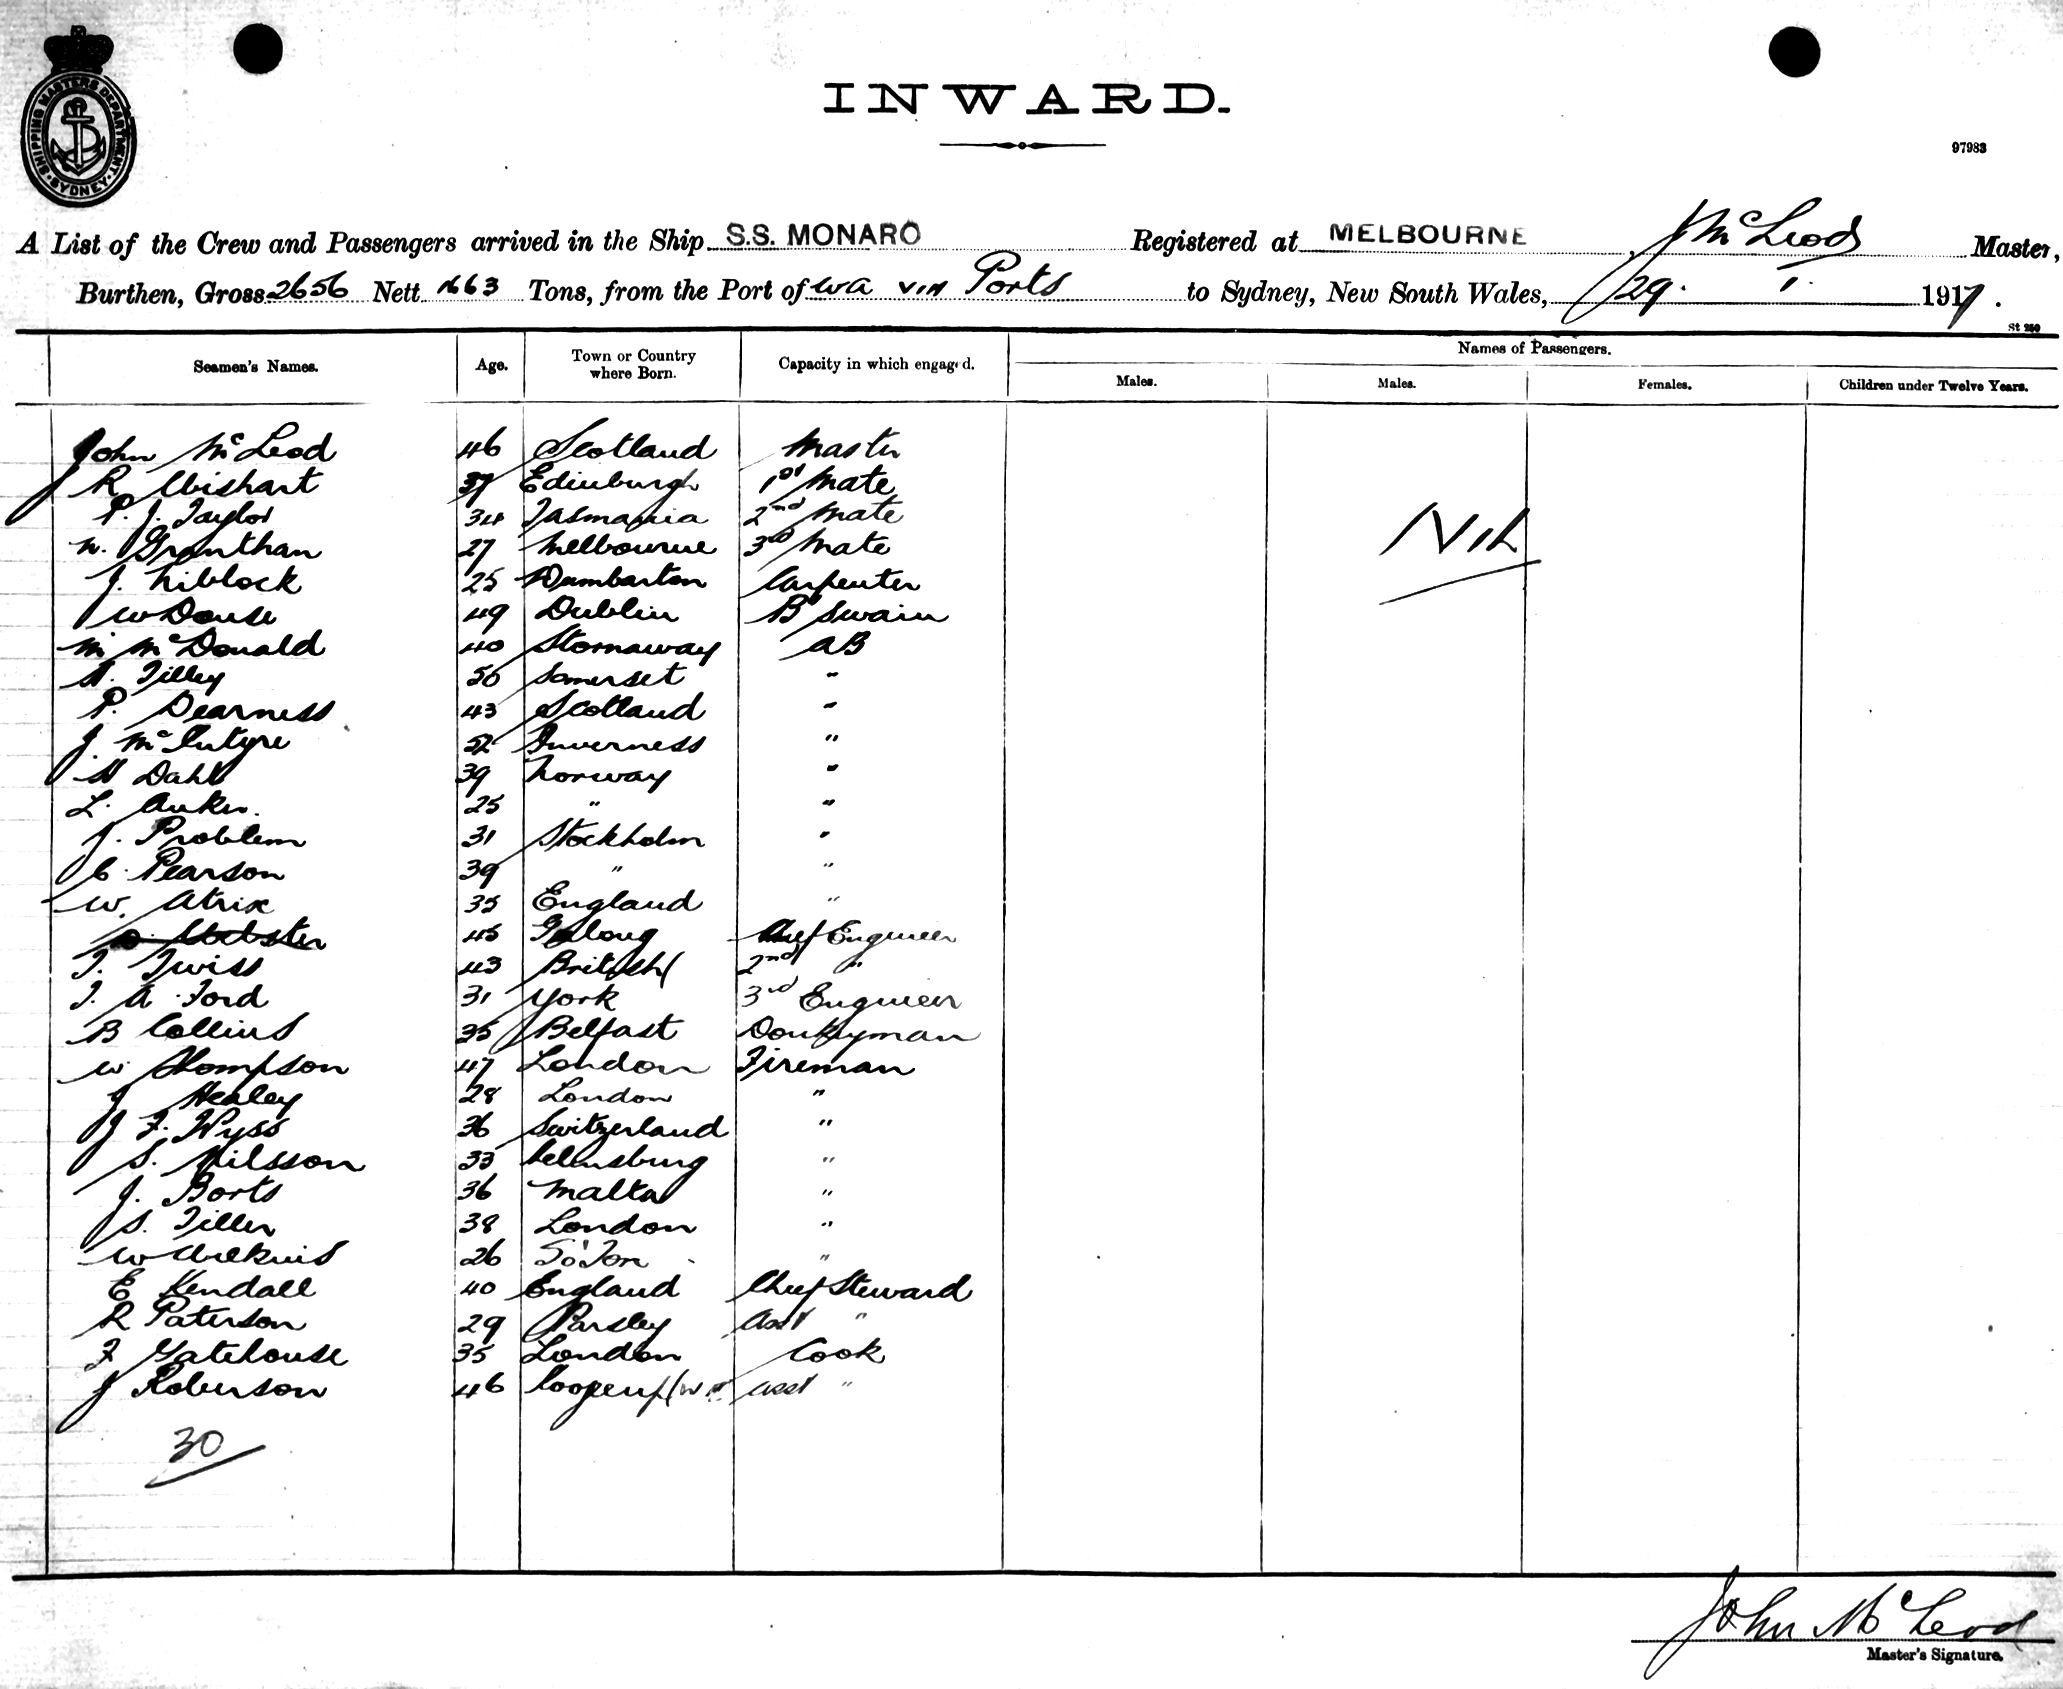 SHIPPING MASTERS DEPARTMENT. SYDNEY.
INWARD.
97983
A List of the Crew and Passengers arrived in the Ship S.S. MONARO Registered at MELBOURNE, J McLeod Master,
Burthen, Gross 2656 Nett 1663 Tons, from the Port of WA VIA Ports to Sydney, New South Wales, 29. 1. 1917.
St 250
Seamen's Names. Age. Town or Country where Born. Capacity in which engaged. Names of Passengers.
Males. Males. Females. Children under Twelve Years.
John McLeod 46 Scotland Master
R Wishart 37 Edinburgh 1st Mate
P. J. Taylor 34 Tasmania 2nd Mate
Nil
N. Granthan 27 Melbourne 3rd Mate
J. Niblock 25 Dumbarton Carpenter
W Douse 49 Dublin B Swain
M McDonald 40 Stornaway AB
Tilley 50 Somerset "
P. Dearness 43 Scotland "
J. McIntyre 52 Inverness "
Dahl 39 Norway "
L. Anker. 25 " "
J. Problem 31 Stockholm "
C. Pearson 39 " "
W. Atrix 35 England "
Webster 45 Geelong Chief Engineer
T. Twiss 43 British 2nd "
T. A. Ford 31 York 3rd Engineer
B Collins 35 Belfast Donkeyman
W Thompson 47 London Fireman
J Healey 28 London "
J F. Wyss 36 Switzerland "
S. Nilsson 33 Helensburg "
J. Borts 36 Malta "
S. Tiller 38 London "
W Wilkins 26 So'Ton "
E Kendall 40 England Chief Steward
R Paterson 29 Parsley Asst "
F Gatehouse 35 London Cook
J Roberson 46 Asst "
30
John McLeod
Master's Signature.